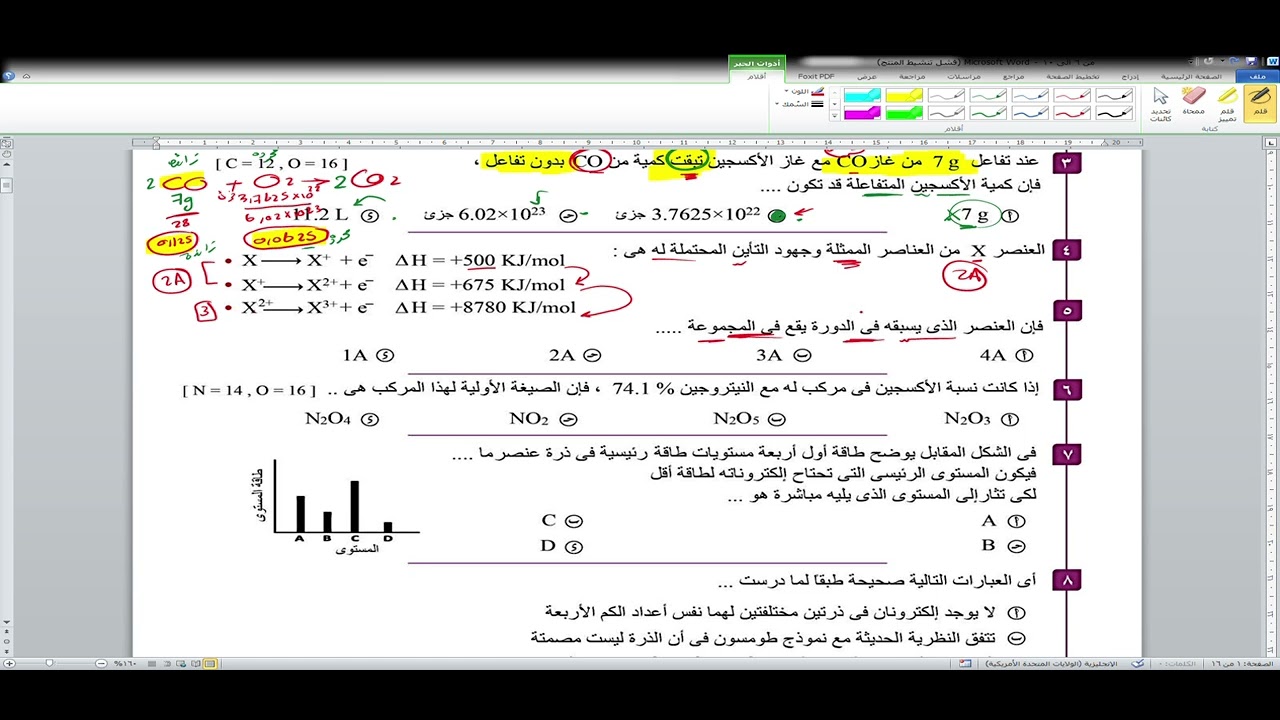 من ٦ الى ١٠ - Microsoft Word (فشل تنشيط المنتج)
أدوات الحبر
ملف الصفحة الرئيسية إدراج تخطيط الصفحة مراجع مراسلات مراجعة عرض Foxit PDF أقلام
قلم قلم تمييز ممحاة تحديد كائنات اللون السُمك
كتابة أقلام
٣ عند تفاعل 7 g من غاز CO مع غاز الأكسجين تبقت كمية من CO بدون تفاعل ، [ C = 12, O = 16 ]
فإن كمية الأكسجين المتفاعلة قد تكون ....
أ 7 g ب 3.7625×10²² جزئ ج 6.02×10²³ جزئ د 11.2 L
2 CO + O2 → 2 CO2
7g
28
3,7625×10²²
6,02×10²³
0,125 0,0625
٤ العنصر X من العناصر الممثلة وجهود التأين المحتملة له هى :
2A
• X ⟶ X⁺ + e⁻ ΔH = +500 KJ/mol
• X⁺ ⟶ X²⁺ + e⁻ ΔH = +675 KJ/mol
2A
• X²⁺ ⟶ X³⁺ + e⁻ ΔH = +8780 KJ/mol
3
٥
فإن العنصر الذى يسبقه فى الدورة يقع فى المجموعة .....
أ 4A ب 3A ج 2A د 1A
٦ إذا كانت نسبة الأكسجين فى مركب له مع النيتروجين % 74.1 ، فإن الصيغة الأولية لهذا المركب هى .. [ N = 14 , O = 16 ]
أ N₂O₃ ب N₂O₅ ج NO₂ د N₂O₄
٧ فى الشكل المقابل يوضح طاقة أول أربعة مستويات طاقة رئيسية فى ذرة عنصر ما ....
فيكون المستوى الرئيسى التى تحتاج إلكتروناته لطاقة أقل
لكى تثار إلى المستوى الذى يليه مباشرة هو ...
أ A ب C
ج B د D
طاقة المستوى
A B C D
المستوى
٨ أى العبارات التالية صحيحة طبقا لما درست ...
أ لا يوجد إلكترونان فى ذرتين مختلفتين لهما نفس أعداد الكم الأربعة
ب تتفق النظرية الحديثة مع نموذج طومسون فى أن الذرة ليست مصمتة
الصفحة: ١ من ١٦ الكلمات: ٠ الإنجليزية (الولايات المتحدة الأمريكية) ١٦٠%